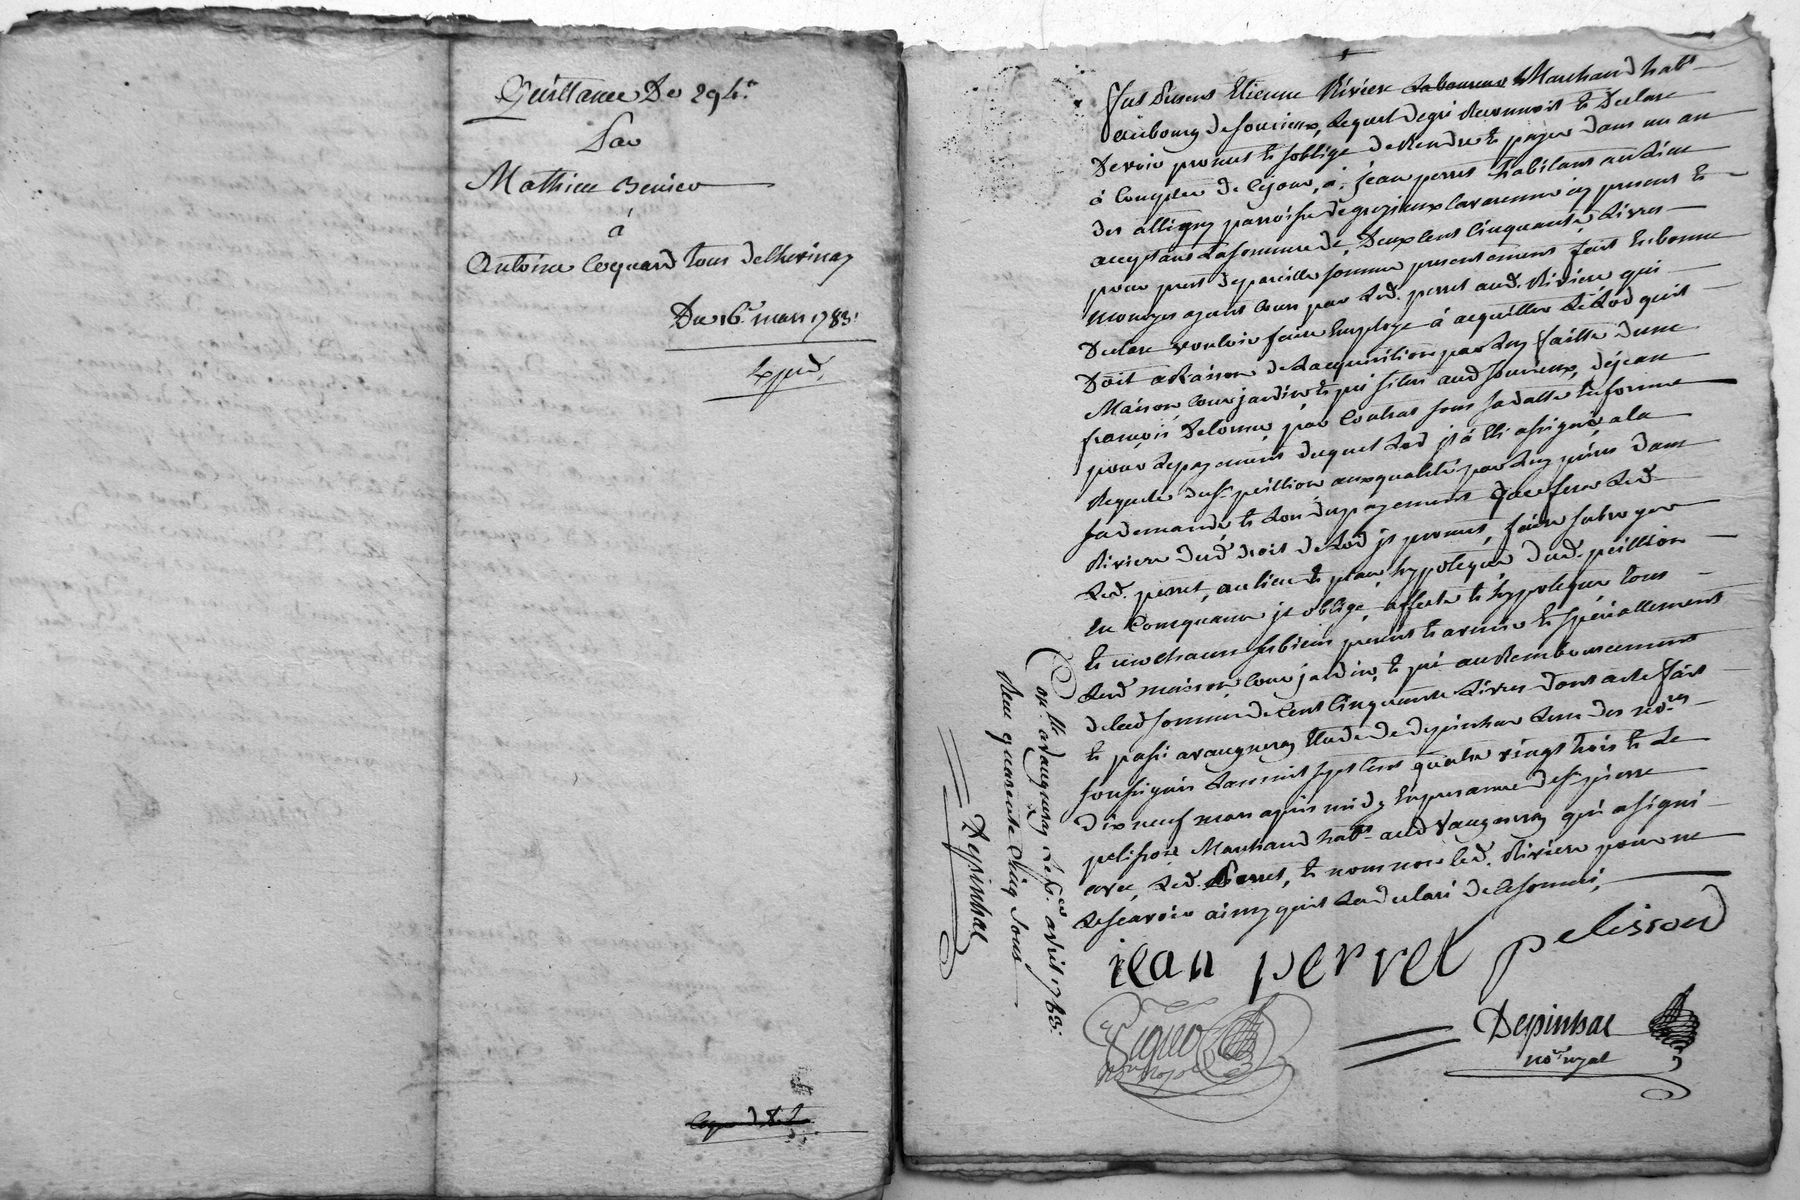 Quittance De 294.lt
Par
Mathieu Benier
à
Antoine Coquard tous de Chevinay
Du 16e. mars 1783.
Expéd.
Fut Present Etienne Riviere Laboureur & Marchand habt.
au bourg de Sourcieux, lequel de gré Reconnoit et Declare
Devoir promet et soblige de Rendre et payer dans un an
à Compter de ce jour, à jean perret habitant au Lieu
des alligny parroisse de grezieux Lavarenne icy present et
acceptant La somme de Deux Cent Cinquante Livres
pour prest de pareille somme presentement fait En bonne
monoye ayant Cours par Led. perret aud. Riviere qui
Declare vouloir faire Employe à acquitter Le Lod qu'il
Doit a Raison de Lacquisition par Luy faitte dune
Maison, Cour jardin et pré situé aud Sourcieux, de jean
françois Delorme, par Contrat sous sa datte En forme
pour Le payement duquel Lod jl à Eté assigné a la
Requete du Sr. peillion aux qualités par Luy prises dans
sa demande et Lors du payement que fera Led.
Riviere dud. droit de Lod jl promet, faire subroger
Led. perret, au lieu et place, hypoteque dud. peillion
En Consequence jl oblige, affecte et hypoteque tous
Et un chacun ses biens present et avenir et specialement
Lesd maison, Cour jardin, et pré au Remboursement
de lad somme de Cent Cinquante Livres dont acte fait
et passé a vaugneray Etude de Depinhac Lun des nores.
soussignés Lan mil sept Cent quatre vingt trois et Le
dix neuf mars après midy En presence de Sr. pierre
pelisson Marchand habt. aud vaugneray qui a signé
avec Led. Perret, et non moi led. Riviere pour ne
Le sçavoir ainsy quil La declaré de Ce sommé,
jean perret pelisson
Depinhac
nore. royal
Conlle. a Vaugneray Le avril 1783.
Reçu quarante Cinq Sous
Depinhac